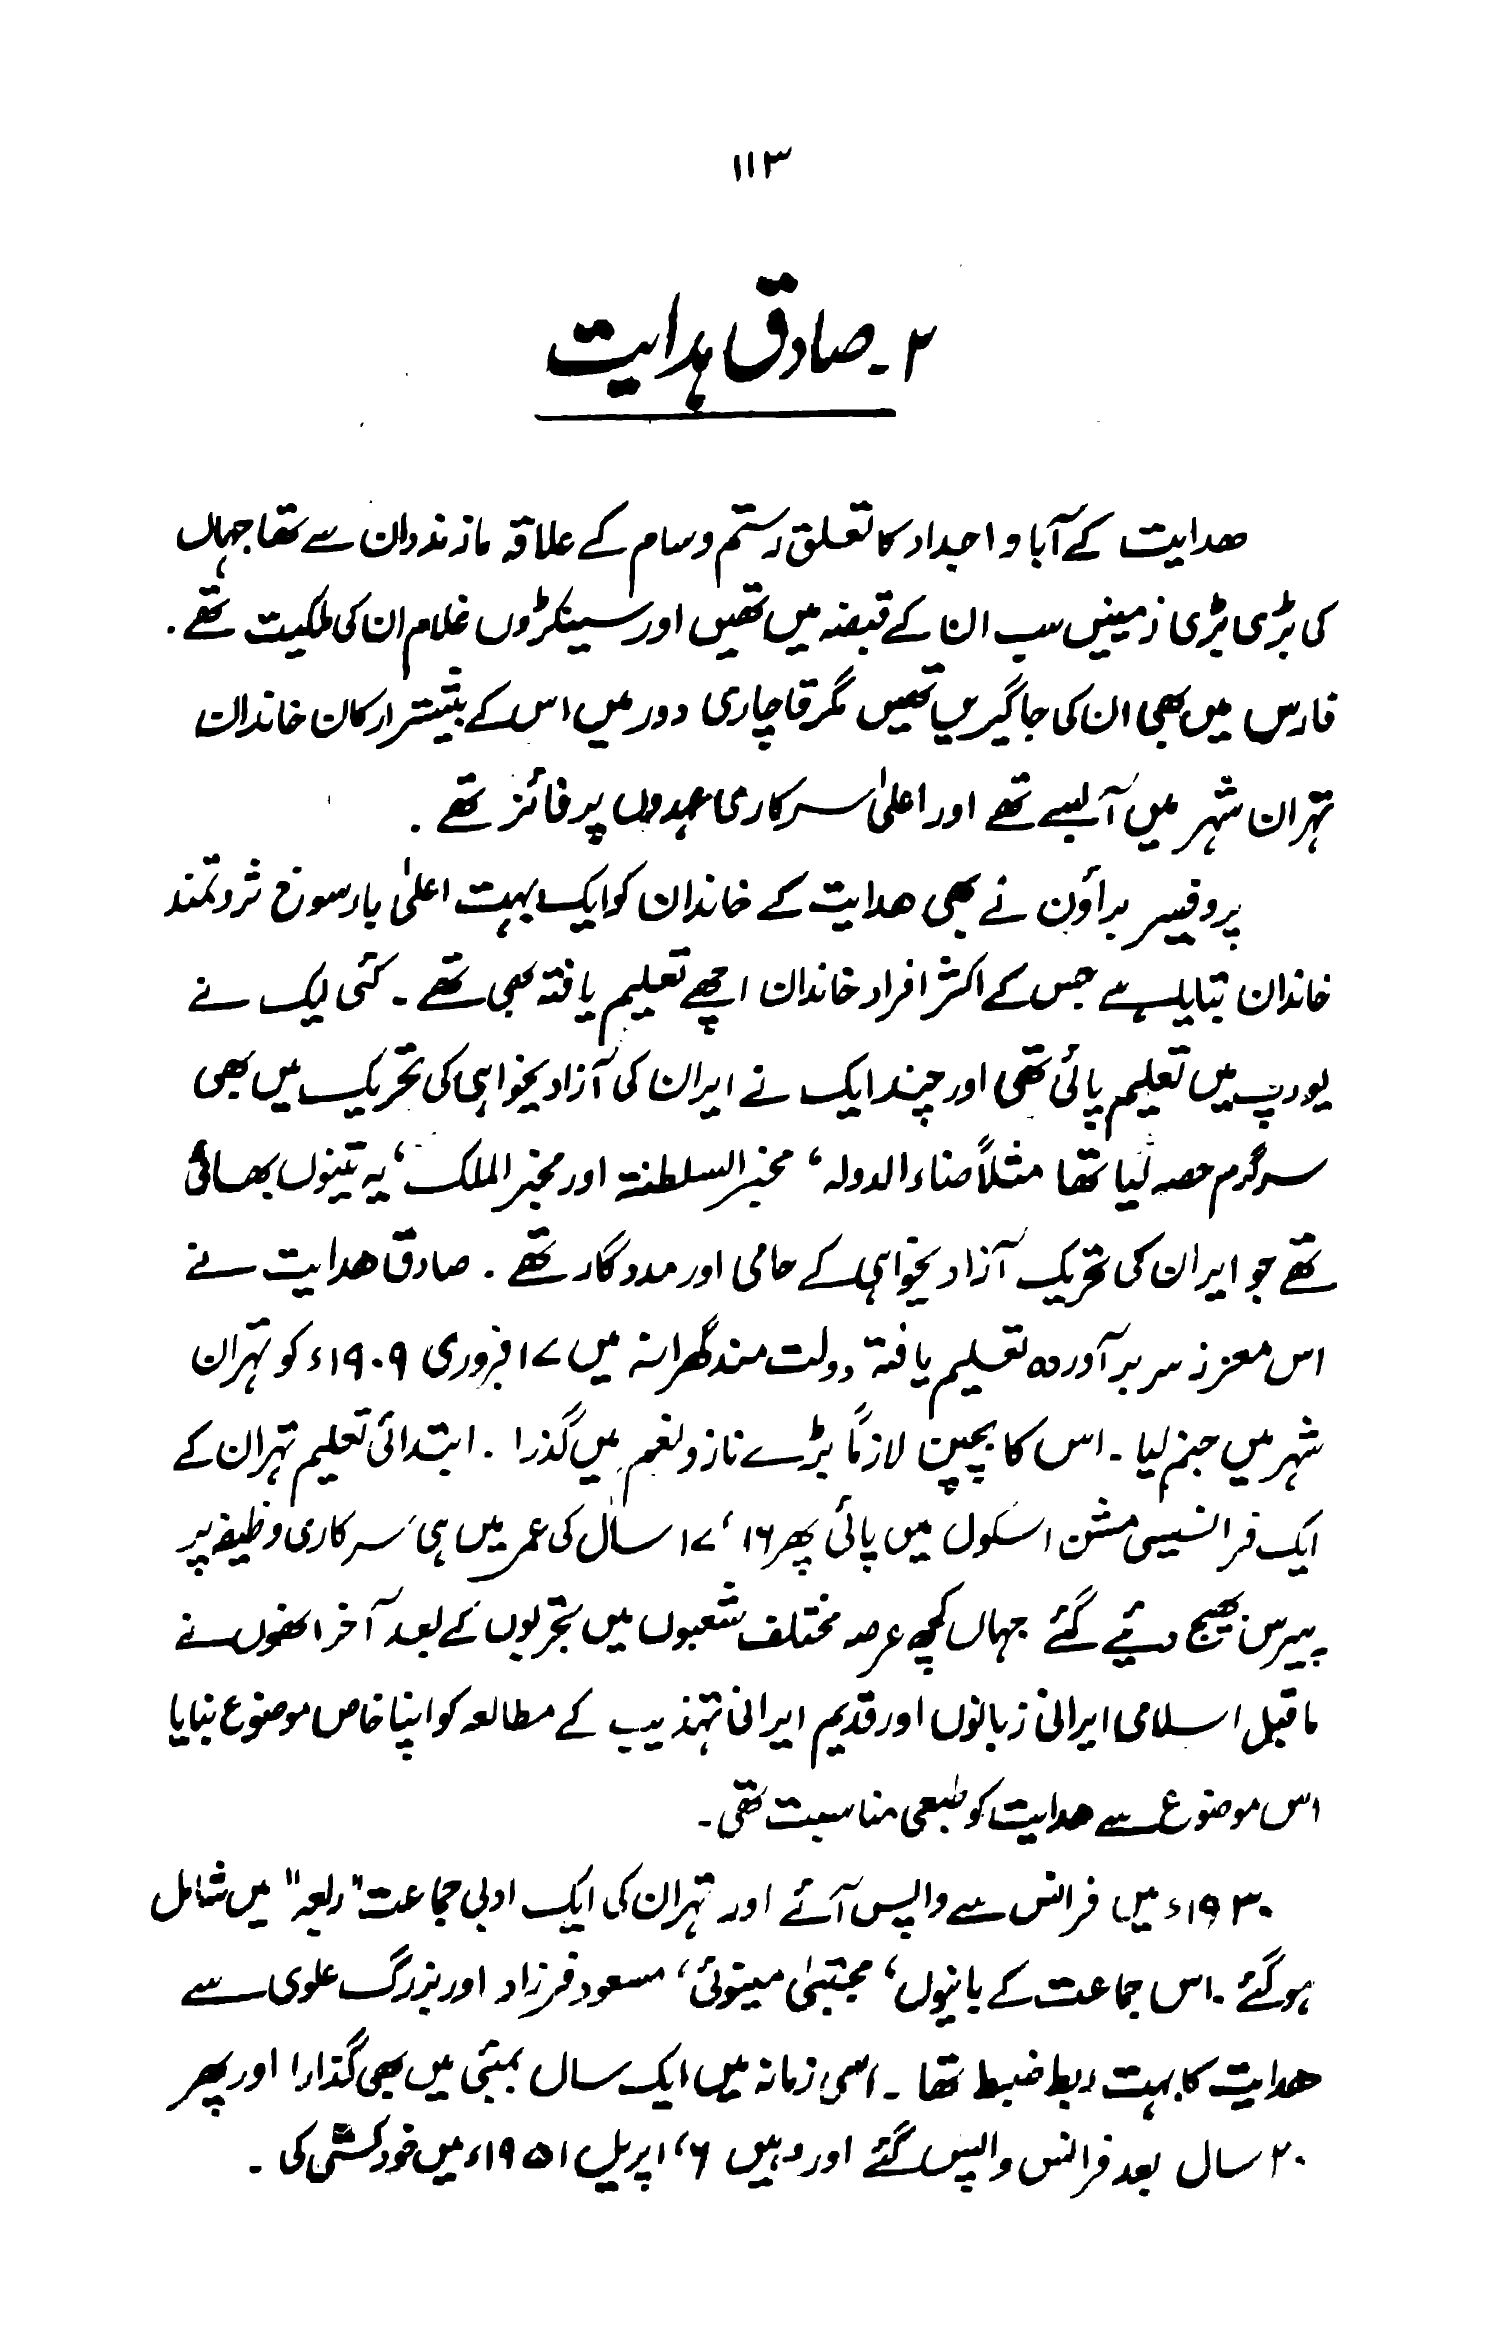 ۱۱۳
۲۔ صادق ہدایت
ھدایت کے آبا و اجداد کا تعلق رستم و سام کے علاقہ مازندران سے تھا جہاں
کی بڑی بڑی زمینیں سب ان کے قبضہ میں تھیں اور سینکڑوں غلام ان کی ملکیت تھے ۔
فارس میں بھی ان کی جاگیریں تھیں مگر قاچاری دور میں اس کے بیشتر ارکان خاندان
تہران شہر میں آ بسے تھے اور اعلیٰ سرکاری عہدوں پر فائز تھے ۔
پروفیسر براؤن نے بھی ھدایت کے خاندان کو ایک بہت اعلیٰ بارسوخ ثروتمند
خاندان بتایا ہے جس کے اکثر افراد خاندان اچھے تعلیم یافتہ بھی تھے ۔ کئی ایک نے
یورپ میں تعلیم پائی تھی اور چند ایک نے ایران کی آزادیخواہی کی تحریک میں بھی
سرگرم حصہ لیا تھا مثلاً صناء الدولہ، مخبر السلطنۃ اور مخبر الملک، یہ تینوں بھائی
تھے جو ایران کی تحریک آزادیخواہی کے حامی اور مددگار تھے ۔ صادق ھدایت نے
اس معزز سربرآوردہ تعلیم یافتہ دولت مند گھرانہ میں ۱۷ فروری ۱۹۰۹ء کو تہران
شہر میں جنم لیا ۔ اس کا بچپن لازماً بڑے ناز و نعم میں گذرا ۔ ابتدائی تعلیم تہران کے
ایک فرانسیسی مشن اسکول میں پائی پھر ۱۶، ۱۷ سال کی عمر میں ہی سرکاری وظیفہ پر
پیرس بھیج دئیے گئے جہاں کچھ عرصہ مختلف شعبوں میں تجربوں کے بعد آخر انھوں نے
ماقبل اسلامی ایرانی زبانوں اور قدیم ایرانی تہذیب کے مطالعہ کو اپنا خاص موضوع بنایا
اس موضوع سے ھدایت کو طبعی مناسبت تھی ۔
۱۹۳۰ء میں فرانس سے واپس آئے اور تہران کی ایک ادبی جماعت "ربعہ" میں شامل
ہو گئے ۔ اس جماعت کے بانیوں، مجتبیٰ مینوئی، مسعود فرزاد اور بزرگ علوی سے
ھدایت کا بہت ربط ضبط تھا ۔ اسی زمانہ میں ایک سال بمبئی میں بھی گذارا اور پھر
۲۰ سال بعد فرانس واپس گئے اور وہیں ۶، اپریل ۱۹۵۱ء میں خودکشی کی ۔